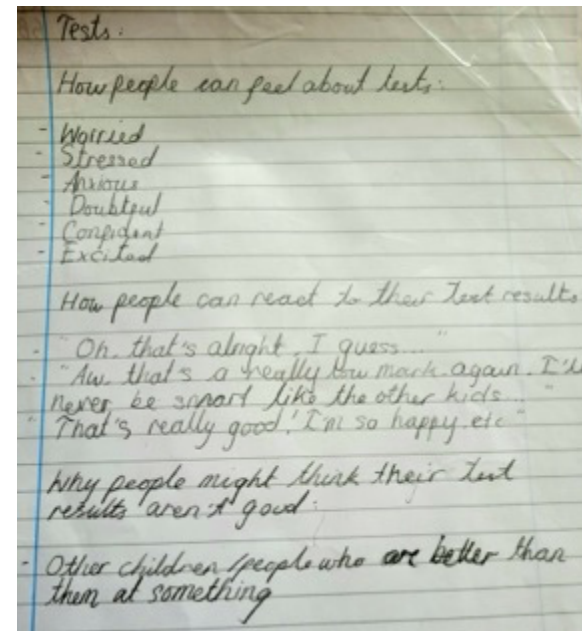 Tests:
How people can feel about tests:
- Worried
- Stressed
- Anxious
- Doubtful
- Confident
- Excited
How people can react to their test results
- "Oh, that's alright, I guess..."
- "Aw, that's a really low mark again. I'll
never be smart like the other kids..."
"That's really good! I'm so happy etc"
Why people might think their test
results aren't good:
- Other children/people who are better than
them at something